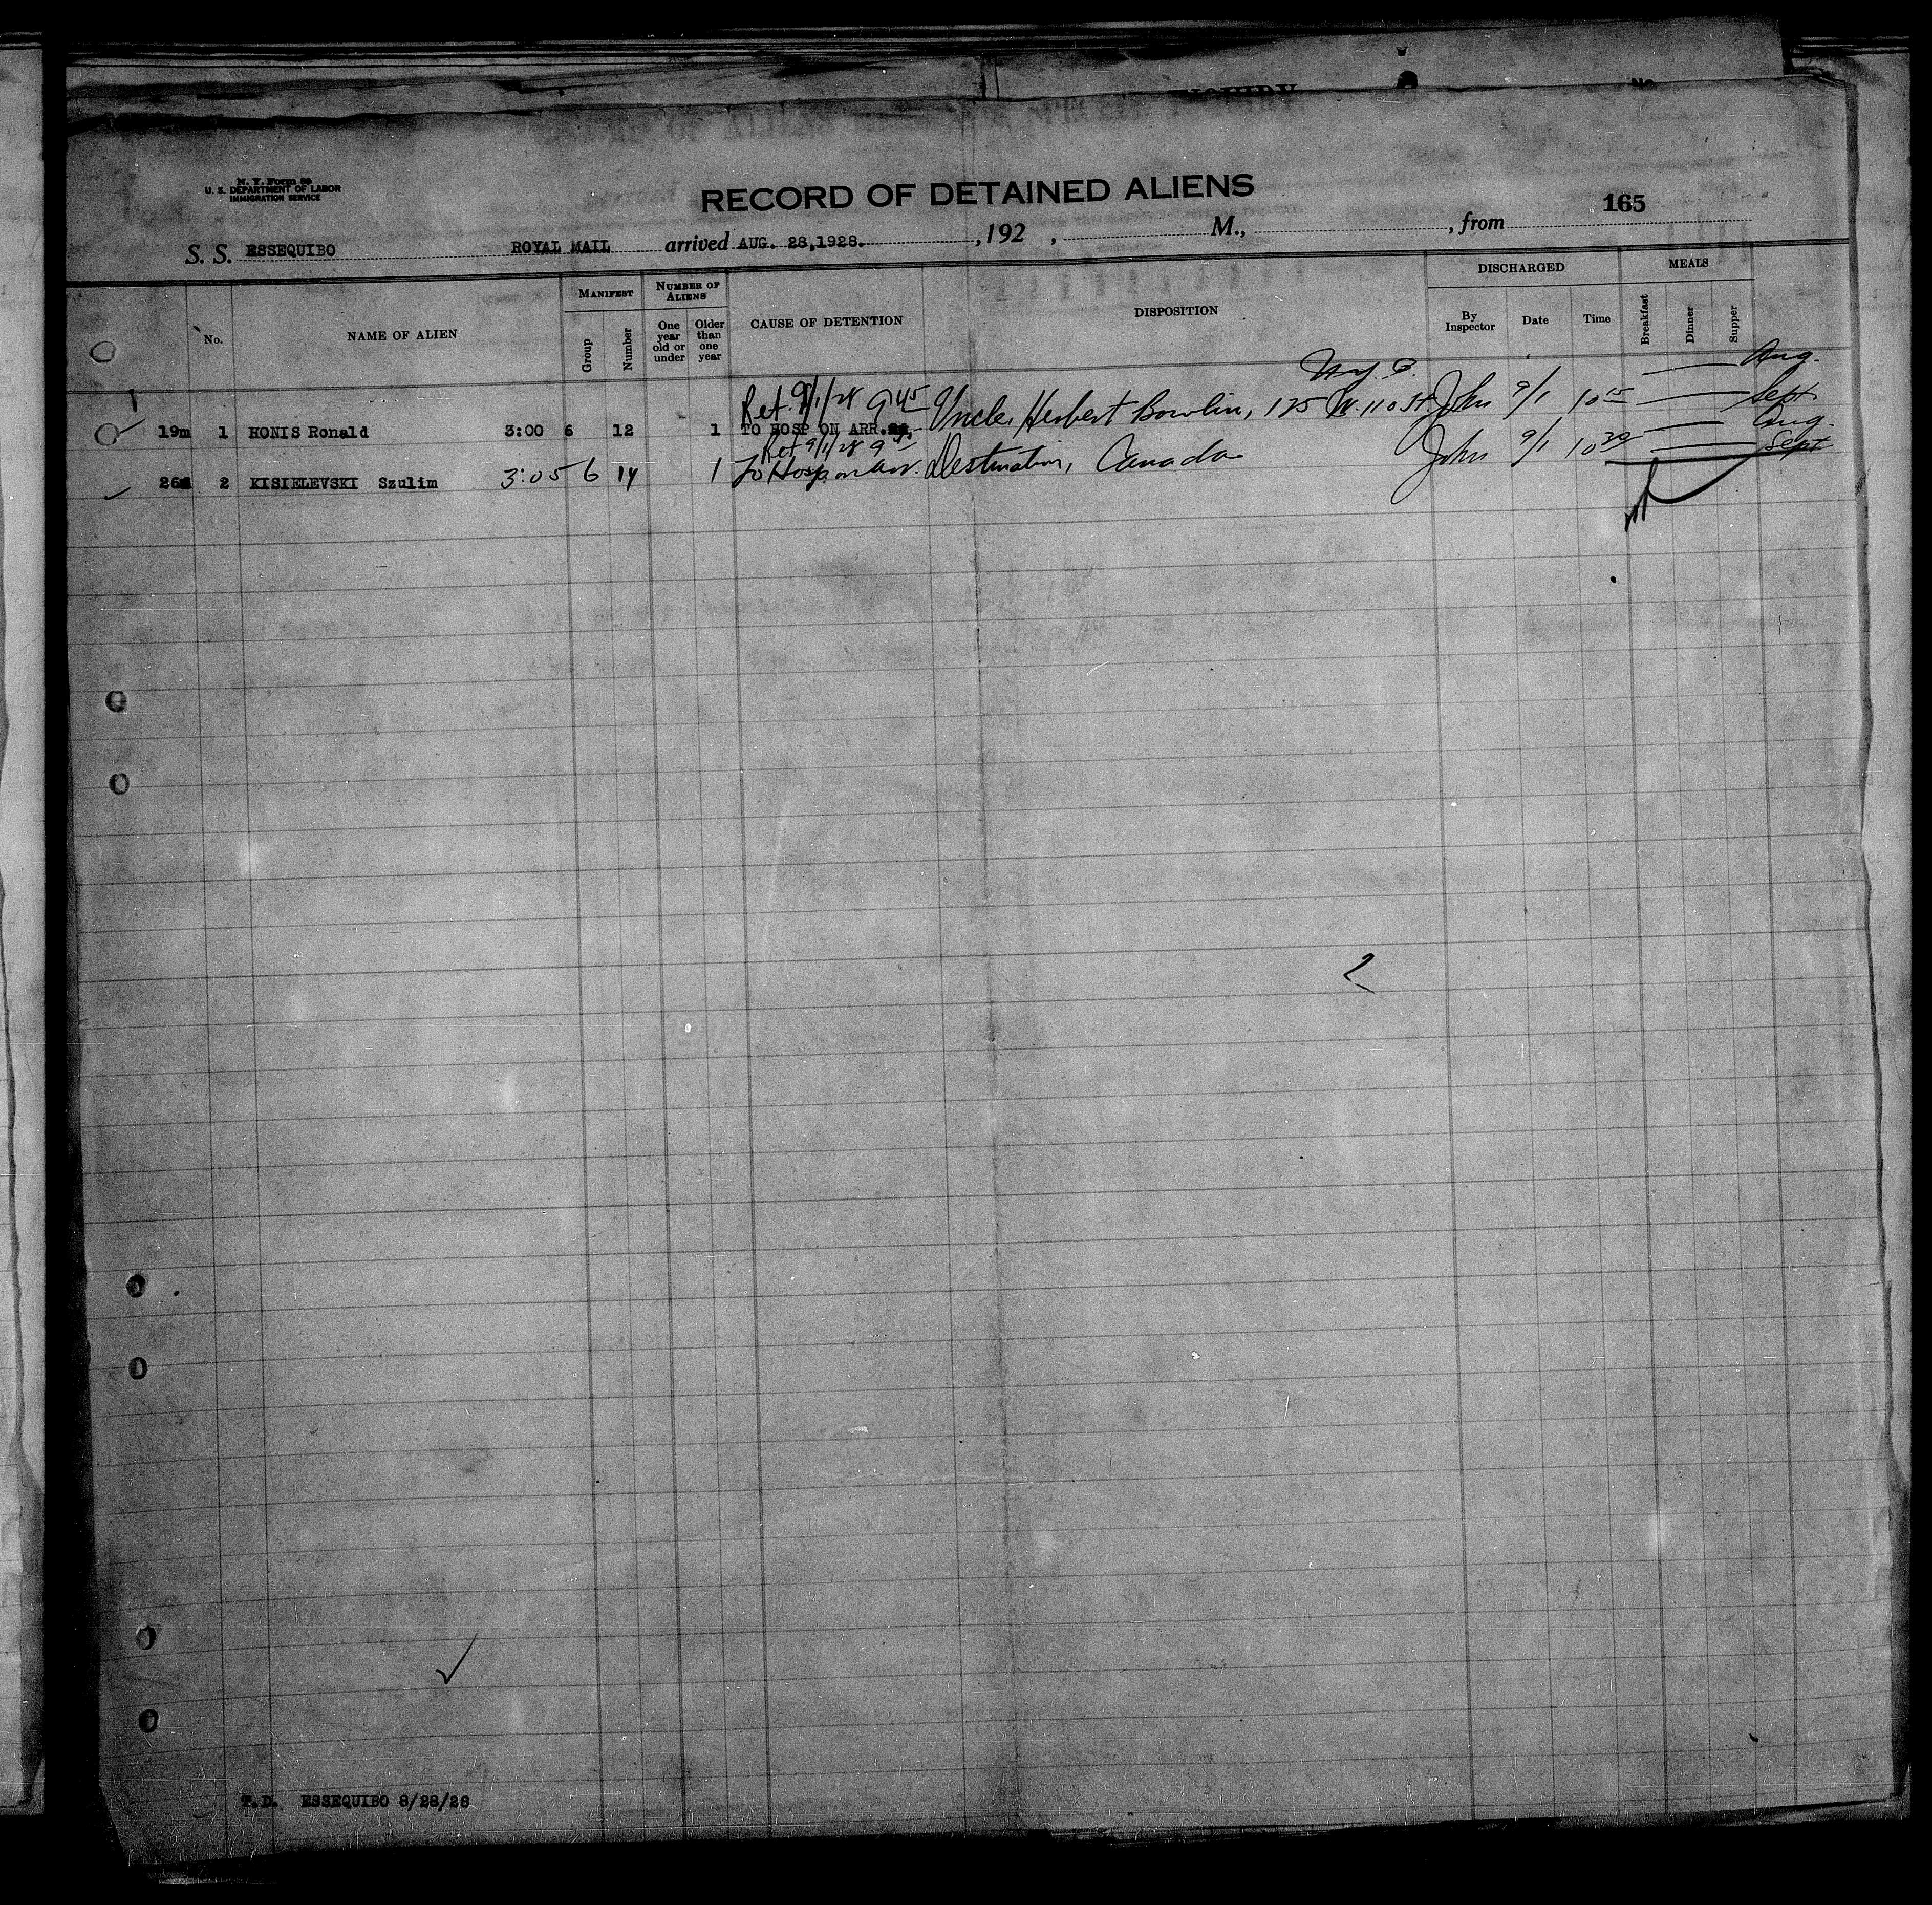 N. Y. Form 89
U. S. DEPARTMENT OF LABOR
IMMIGRATION SERVICE
RECORD OF DETAINED ALIENS
165
S. S. ESSEQUIBO ROYAL MAIL arrived AUG. 28,1928. , 192 , M., , from
No.
NAME OF ALIEN
MANIFEST
Group
Number
NUMBER OF ALIENS
One year old or under
Older than one year
CAUSE OF DETENTION
DISPOSITION
DISCHARGED
By Inspector
Date
Time
MEALS
Breakfast
Dinner
Supper
Aug.
Ret. 9/1/28 9 45
Sept.
19m 1 HONIS Ronald 3:00 6 12 1 TO HOSP ON ARR. Uncle, Herbert Bowlin, 125 W. 110 St. John 9/1 10 15
Aug.
Ret 9/1/28 9
Sept
26 2 KISIELEVSKI Szulim 3:05 6 14 1 To Hosp on arr. Destination, Canada John 9/1 10 20
2
T.D. ESSEQUIBO 8/28/28